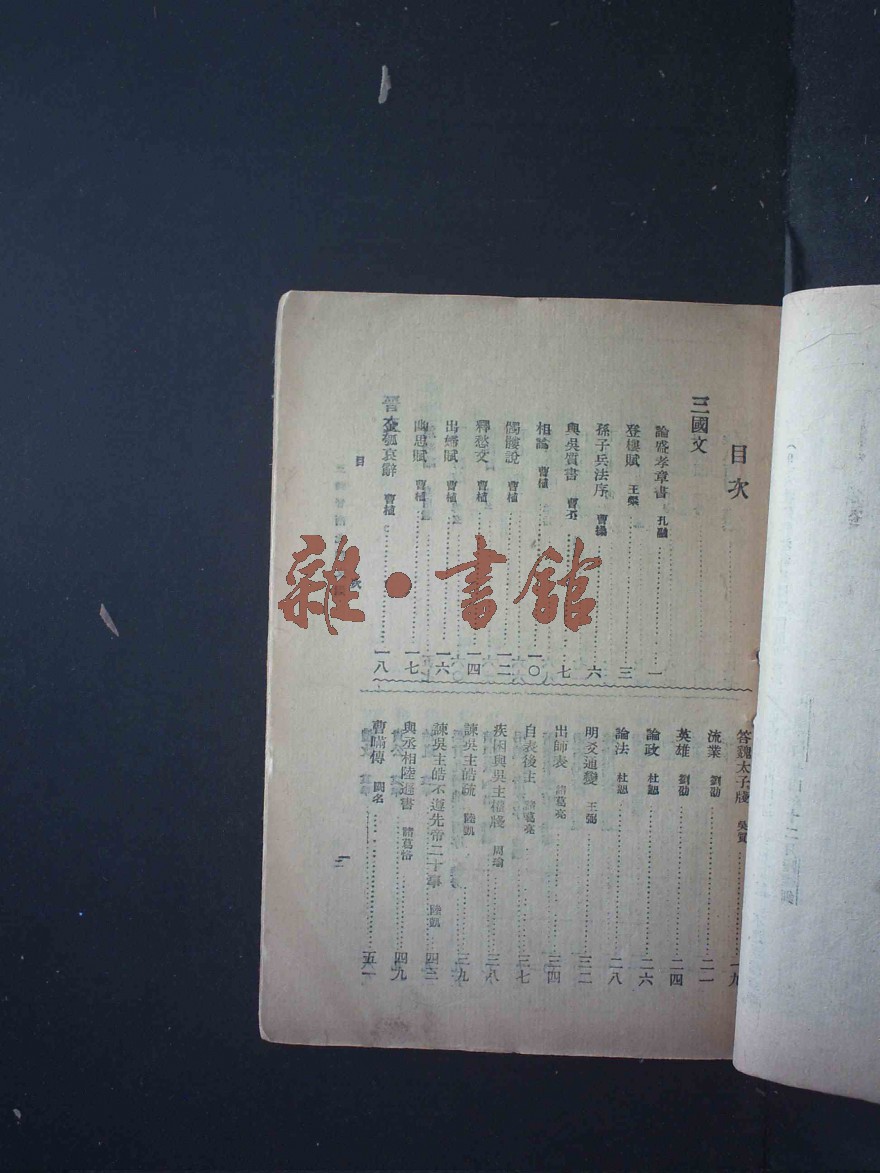 目次
三國文
論盛孝章書 孔融 一
登樓賦 王粲 三
孫子兵法序 曹操 六
與吳質書 曹丕 七
相論 曹植 一〇
髑髏說 曹植 一二
釋愁文 曹植 一四
出婦賦 曹植 一六
幽思賦 曹植 一七
金瓠哀辭 曹植 一八
答魏太子牋 吳質 一九
流業 劉劭 二一
英雄 劉劭 二四
論政 杜恕 二六
論法 杜恕 二八
明爻通變 王弼 三二
出師表 諸葛亮 三四
自表後主 諸葛亮 三七
疾困與吳主權牋 周瑜 三八
諫吳主皓疏 陸凱 三九
諫吳主皓不遵先帝二十事 陸凱 四三
與丞相陸遜書 諸葛恪 四九
曹瞞傳 闕名 五一
目
次
雜·書館